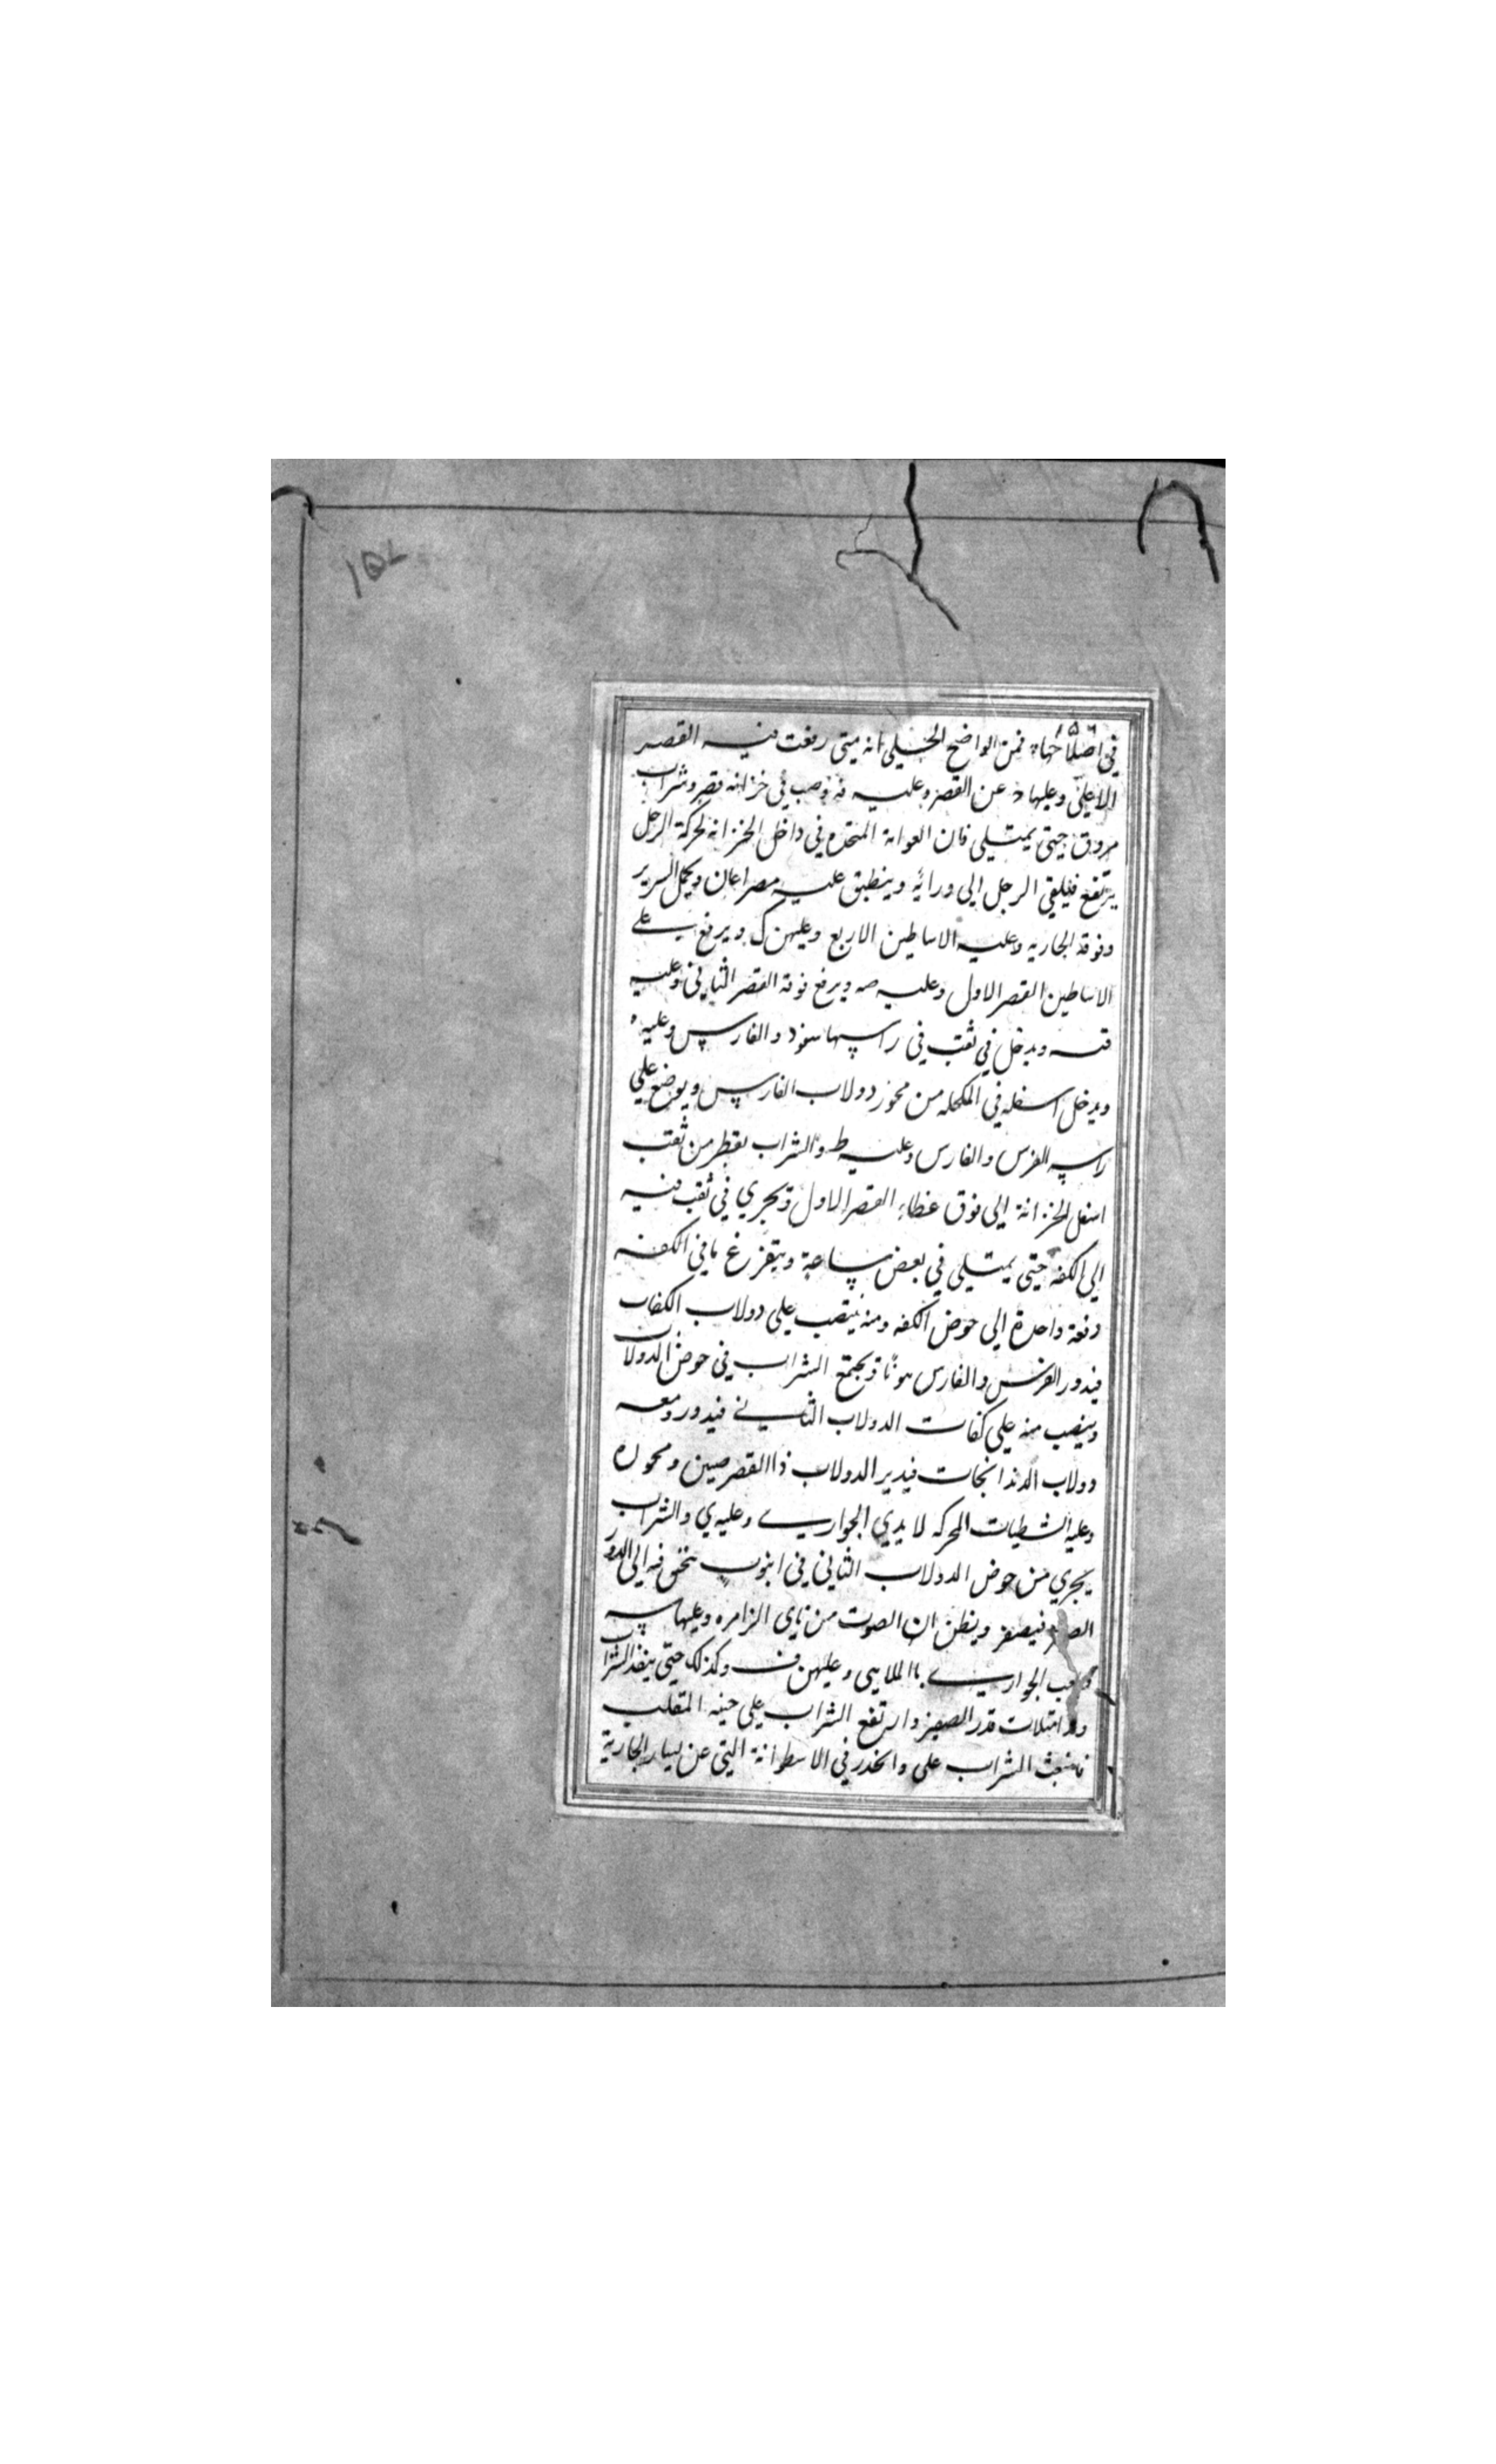 ١٥٧
١٥٦
في اصلاحها فمن الواضح الجلي انه متى رفعت قبه القصر
الاعلى وعليها د عن القصر وعليه فه وصب في خزانه قصر وشراب
مروق حيتى يمتلي فان العوامة المتخده في داخل الخزانة لحركة الرجل
يرتفع فيلقي الرجل الي ورائه وينطبق عليه مصراعان ويحمل السرير
وفوقه الجاريه وعليه الاساطين الاربع وعليهن ك ويرفع على
الاساطين القصر الاول وعليه صه ويرفع فوقه القصر الثاني وعليه
فـه ويدخل في ثقب في راسها سفود والفارس وعليه
ويدخل اسفله في المكحله من محور دولاب الفارس ويوضع علي
راسه الفرس والفارس وعليه ط والشراب يقطر من ثقب
اسفل الخزانة الي فوق غطاء القصر الاول ويجري في ثقب فيه
الي الكفه حيتى يمتلي في بعض ساعة ويتفرغ ما في الكفه
دفعة واحدة الي حوض الكفه ومنه ينصب علي دولاب الكفات
فيدور الفرس والفارس هونا ويجتمع الشراب في حوض الدولاب
وينصب منه علي كفات الدولاب الثاني فيدور ومعه
دولاب الدندانجات فيدير الدولاب ذا القرصين ومحوره
وعليه الشطيات المحركه لايدي الجواري وعليه ي والشراب
يجري من حوض الدولاب الثاني في انبوب نخفه الي الدور
فيصفر ويظن ان الصوت من ناي الزامره وعليها سه
الجواري باالملاهي وعليهن ف وكذلك حتى ينفد الشراب
امتلات قدر الصفير وارتفع الشراب علي حنيه المقلب
فانبعث الشراب على وانحدر في الاسطوانة التي عن يسار الجارية